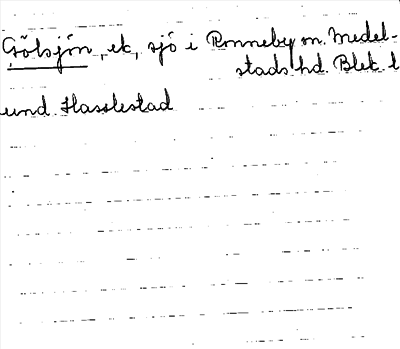 Gölsjön, ek, sjö i Ronneby m. Medel-
stads hd. Blek. l
und. Hasslestad